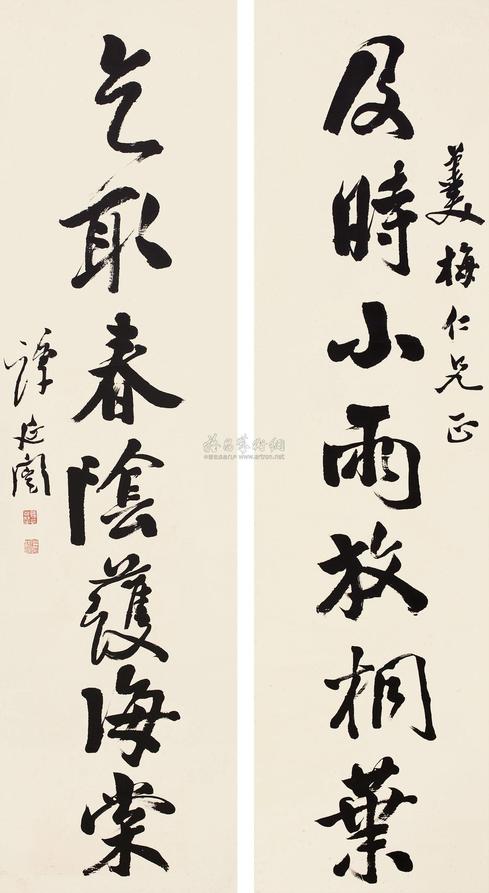 美梅仁兄正
及時小雨放桐葉
乞取春陰護海棠
譚延闓
www.artron.net